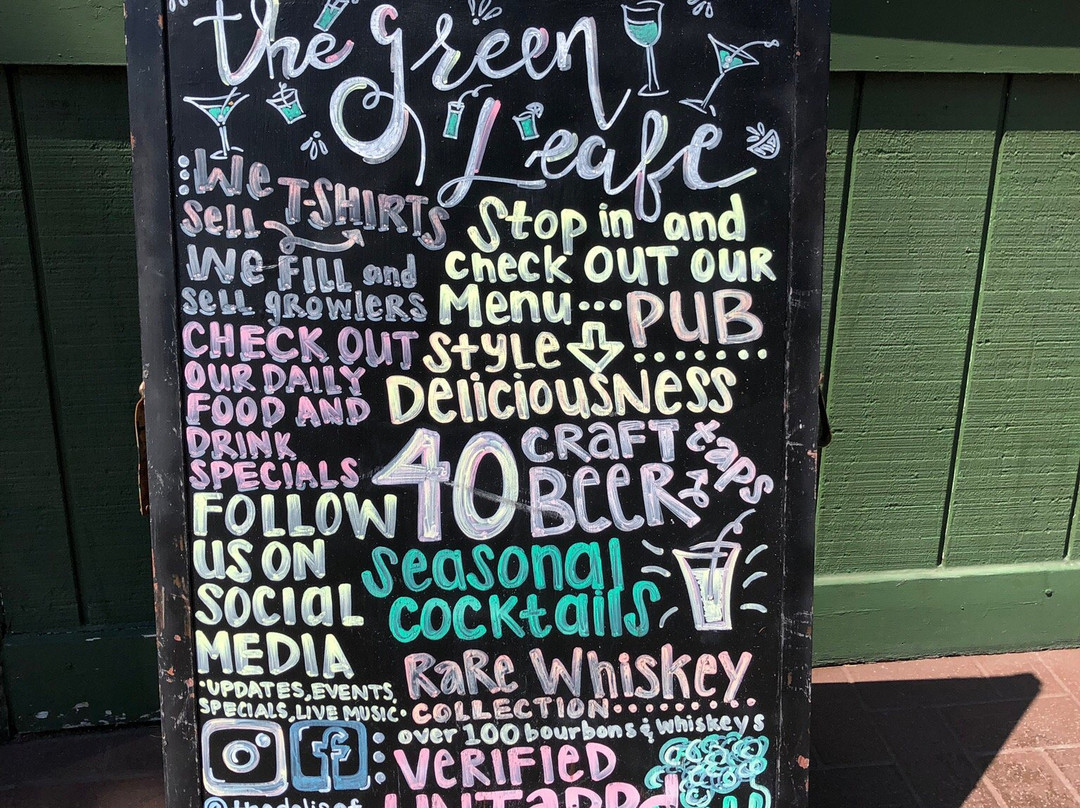 the Green
Leafe
We
Sell T-SHIRTS
We FILL and
sell growlers
CHECK OUT
OUR DAILY
FOOD AND
DRINK
SPECIALS
FOLLOW
US ON
SOCIAL
MEDIA
·UPDATES, EVENTS,
SPECIALS, LIVE MUSIC·
Stop in and
check OUT OUR
Menu... PUB
Style
DeliciousNess
40 CRAFT
BEER taps
seasonal
cocktails
RaRe Whiskey
COLLECTION
over 100 bourbons & whiskeys
VERIFIED
UNTAPPd